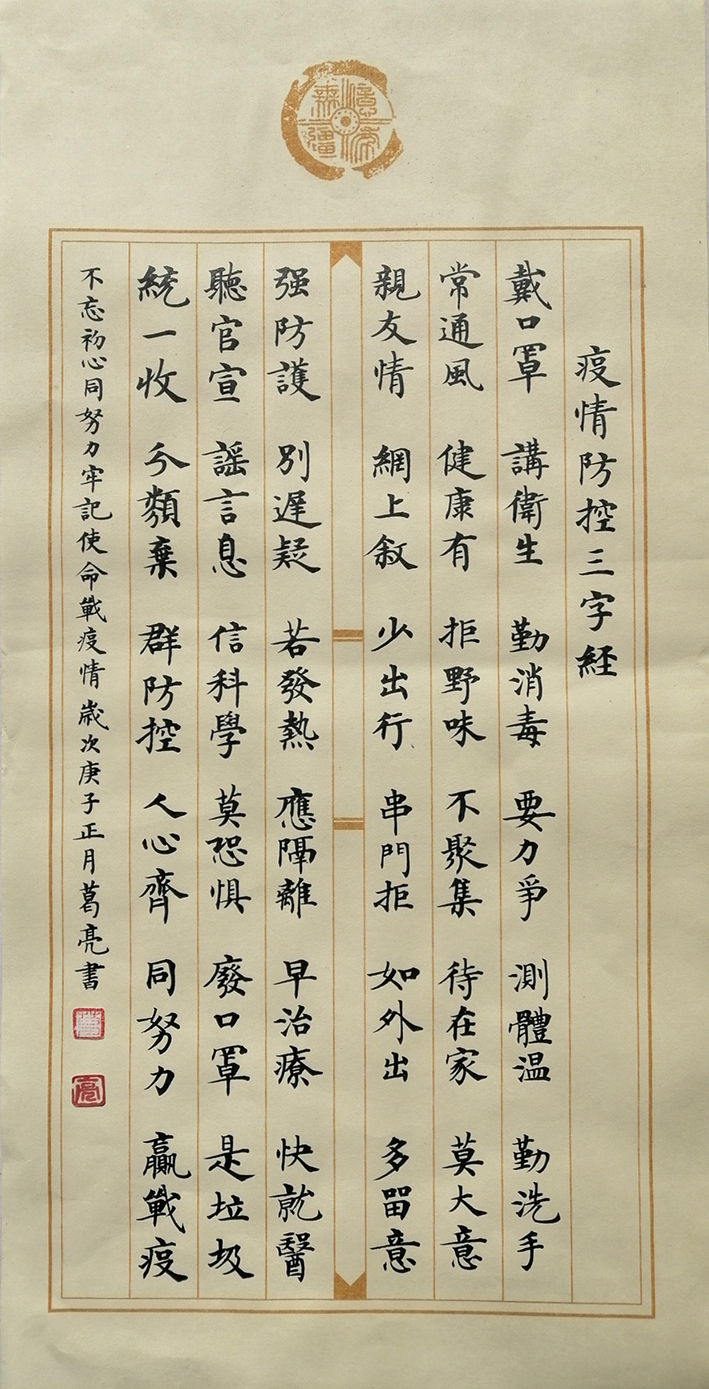 疫情防控三字経
戴口罩 講衛生 勤消毒 要力爭 測體温 勤洗手
常通風 健康有 拒野味 不聚集 待在家 莫大意
親友情 網上敘 少出行 串門拒 如外出 多留意
强防護 別遲疑 若發熱 應隔離 早治療 快就醫
聽官宣 謠言息 信科學 莫恐惧 廢口罩 是垃圾
統一收 分類棄 群防控 人心齊 同努力 贏戰疫
不忘初心同努力牢記使命戰疫情 歲次庚子正月葛亮書